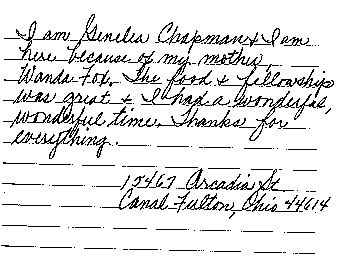 I am Genelia Chapman & I am
here because of my mother,
Wanda Fox. The food & fellowship
was great & I had a wonderful,
wonderful time. Thanks for
everything.
12467 Arcadia St
Canal Fulton, Ohio 44614